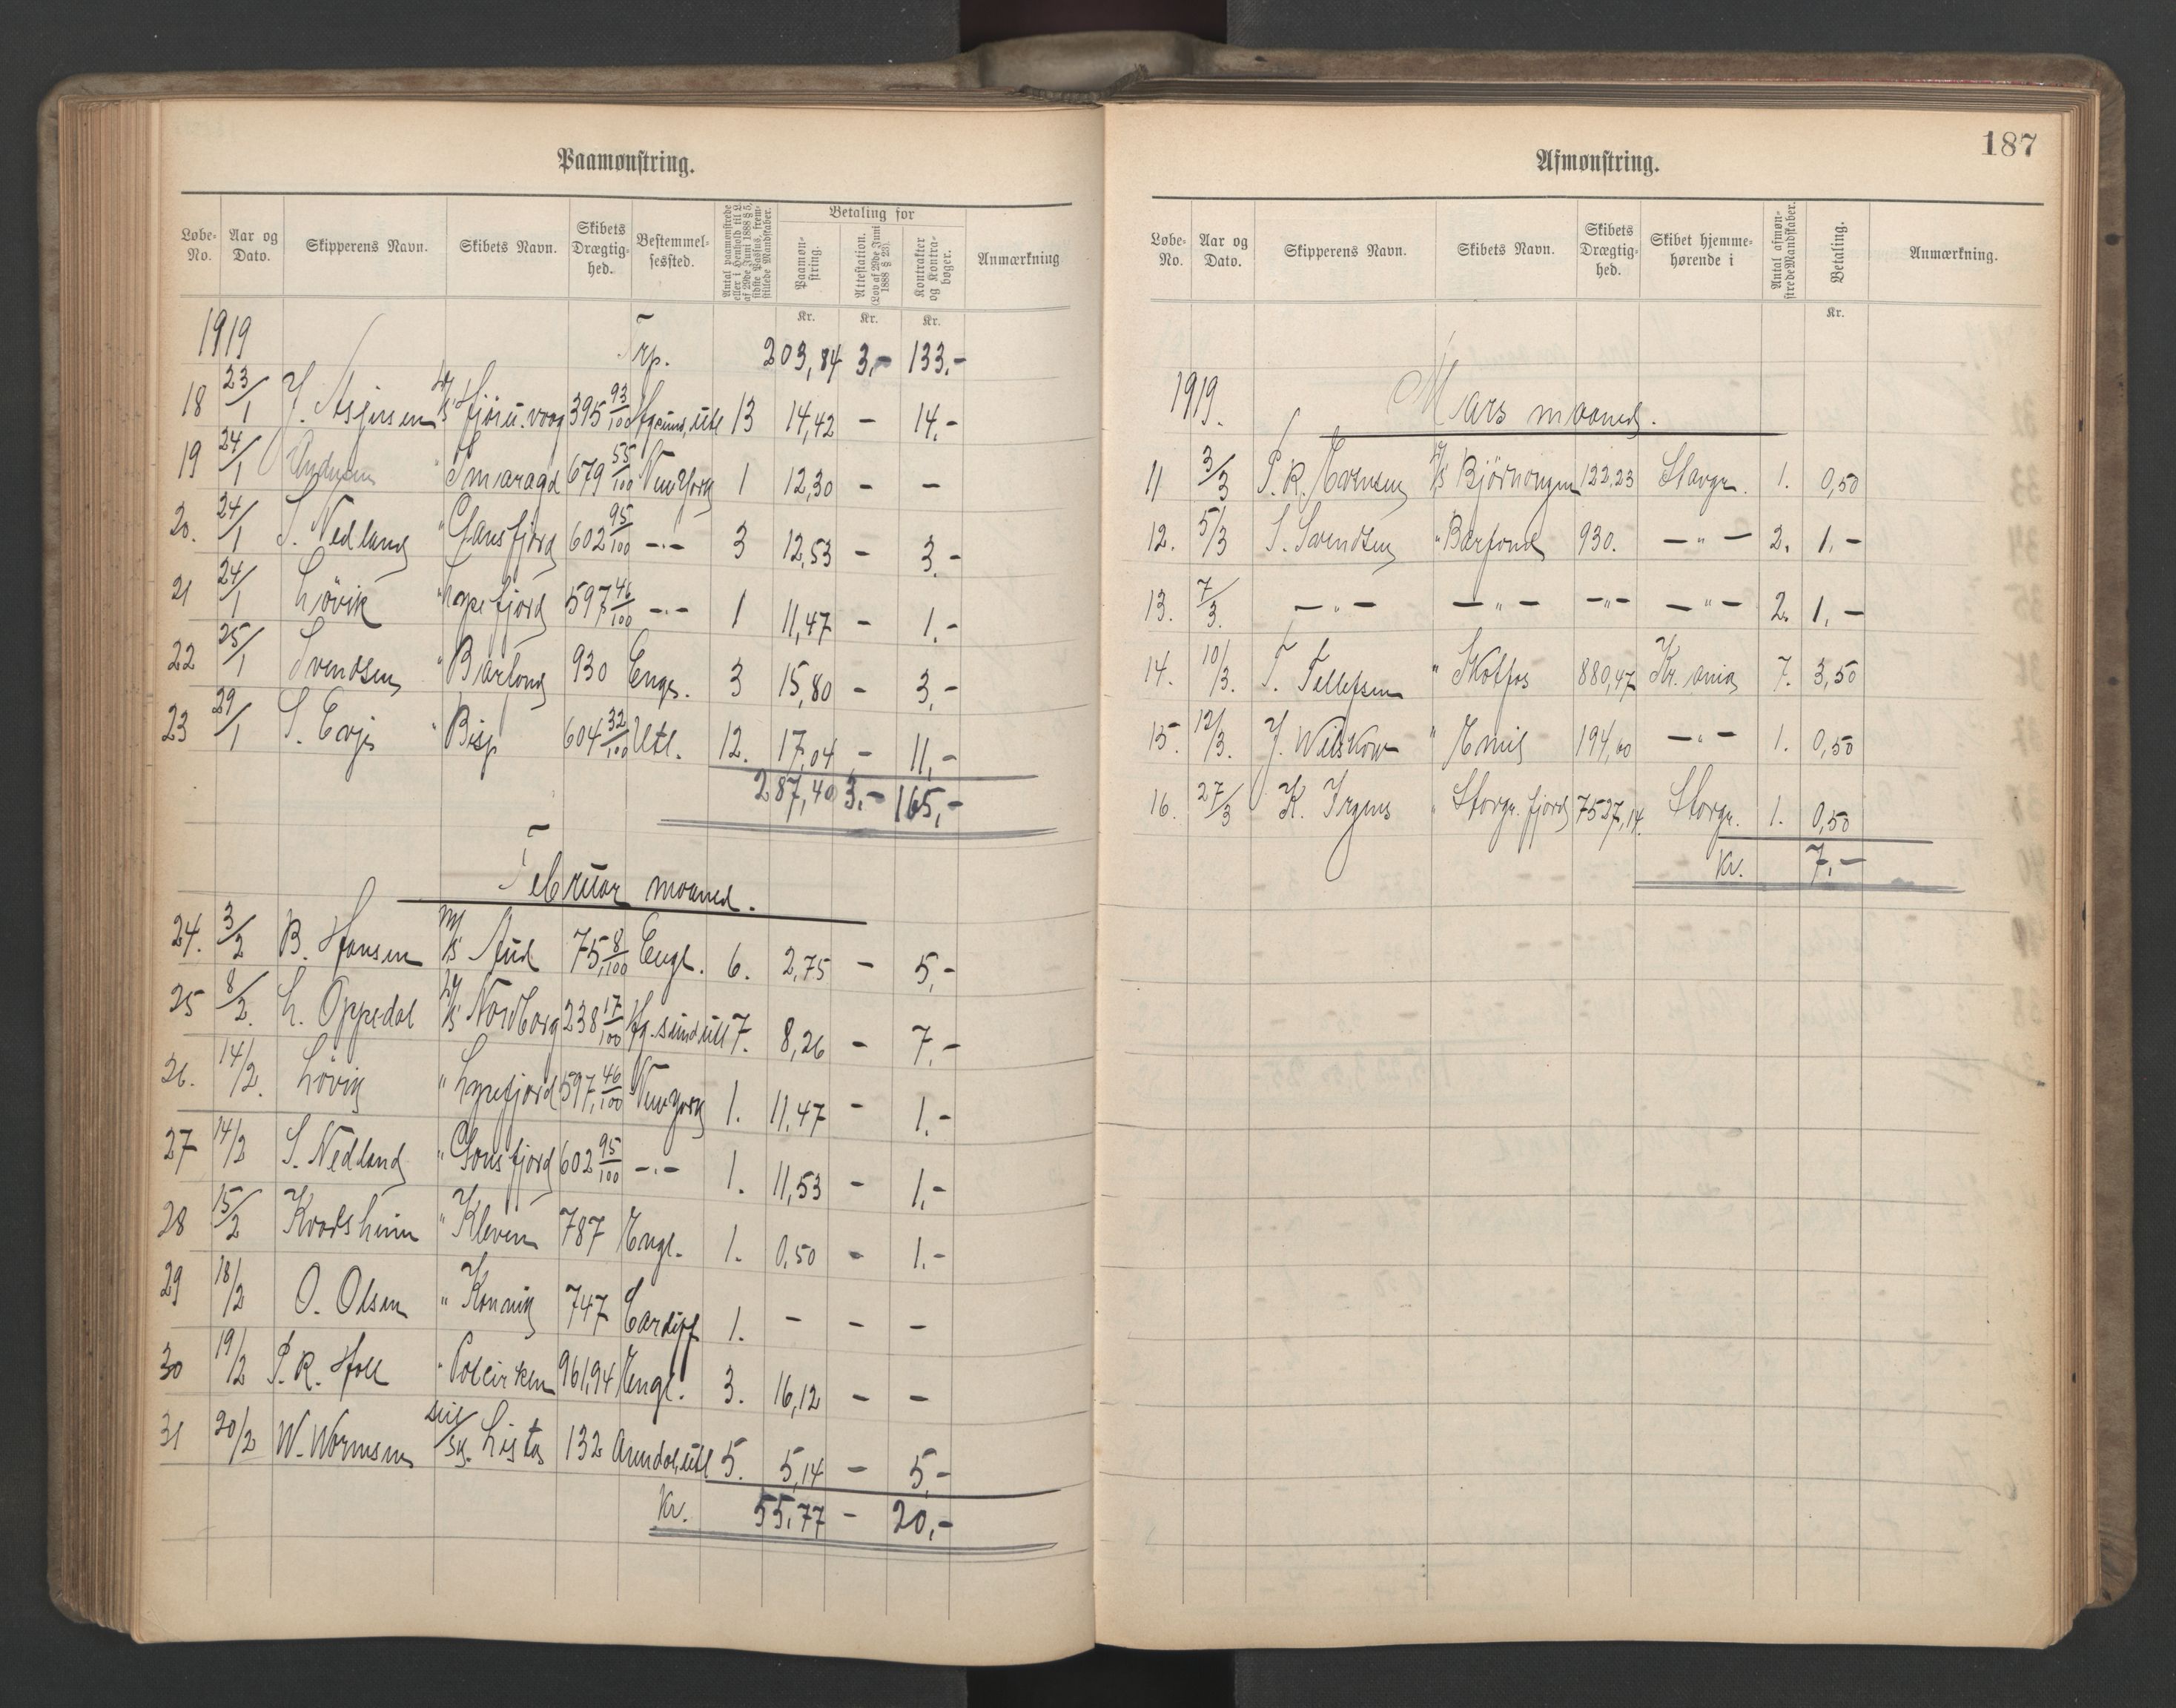 Paamønstring.
Løbe-No. Aar og Dato. Skipperens Navn. Skibets Navn. Skibets Drægtighed. Bestemmelsessted. Antal paamønstrede eller i Henhold til L. af 29de Juni 1888 § 5, sidste Passus, fremstillede Mandskaber. Betaling for Paamønstring. Attestation. (Lov af 29de Juni 1888 § 23). Kontrakter og Kontrabøger. Anmærkning
Kr. Kr. Kr.
1919 Trp. 203,84 3,- 133,-
18 23/1 J. 395 93/100 Hgsund, utl 13 14,42 - 14,-
19 24/1 " Smaragd 679 55/100 New York 1 12,30 - -
20. 24/1 S. Nedland " Gansfjord 602 95/100 -"- 3 12,53 - 3,-
21 24/1 Lövik " Lysefjord 597 46/100 -"- 1 11,47 - 1,-
22 25/1 Svendsen " Barfond 930 Engl. 3 15,80 - 3,-
23 29/1 S. Evje " Bisp 604 32/100 Utl. 12. 17,04 - 11,-
287,40 3,- 165,-
Februar maaned.
24. 3/2 B. Hansen M/S Aud 75, 8/100 Engl. 6. 2,75 - 5,-
25 8/2. L. Oppedal D/S Nordborg 238 17/100 Hg.sund utl 7. 8,26 - 7,-
26. 14/2. Lövik " Lysefjord 597, 46/100 New York 1. 11,47 - 1,-
27 14/2 S. Nedland " Gansfjord 602 95/100 -"- 1. 11,53 - 1,-
28 15/2 Kvadsheim " Kleven 787 Engl. 1. 0,50 - 1,-
29 18/2 O. Olsen " 747 Cardiff 1. - - -
30 19/2 P. R. Holl " Polcirken 961,94 Engl. 3. 16,12 - -
31 20/2 W. Wormsen Seil/sk. Lista 132 Arendal, utl 5. 5,14 - 5,-
Kr. 55,77 - 20,-
187
Afmønstring.
Løbe-No. Aar og Dato. Skipperens Navn. Skibets Navn. Skibets Drægtighed. Skibet hjemmehørende i Antal afmønstrede Mandskaber. Betaling. Anmærkning.
Kr.
1919. Mars maaned.
11 3/3 P. R. Evensen D/S 122,23 Stavgr. 1. 0,50
12. 5/3 S. Svendsen " Barfond 930. -"- 2. 1,-
13. 7/3. -"- -"- -"- -"- 2. 1,-
14. 10/3. T. Tellefsen " Skotfos 880,47 Kr.ania 7. 3,50
15. 12/3. J. Wilskow " Emil 194,60 -"- 1. 0,50
16. 27/3 K. Irgens " Stavgr. fjord 7527,14. Stavgr. 1. 0,50
Kr. 7,-